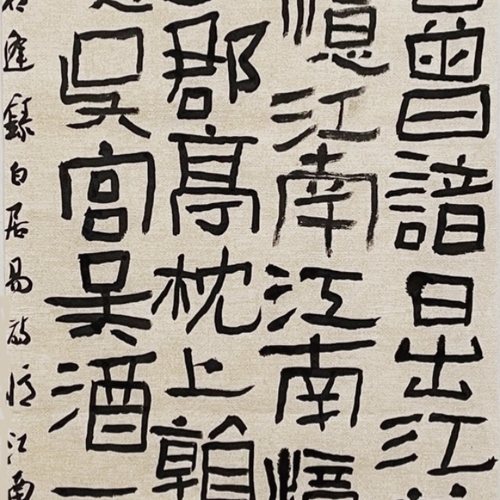 曾諳日出江
憶江南江南憶
郡亭枕上
吳宮吳酒一
逢錄白居易詞憶江南